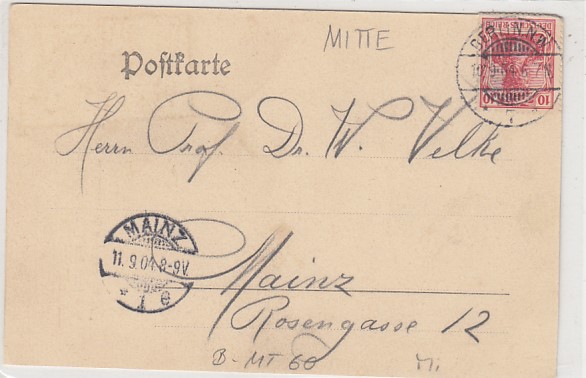 MITTE
Postkarte
10 10
Herrn Prof. Dr. W. Velke
MAINZ
11.9.04.8-9V.
* 1 e
Mainz
Rosengasse 12
B-MT 60
Mi